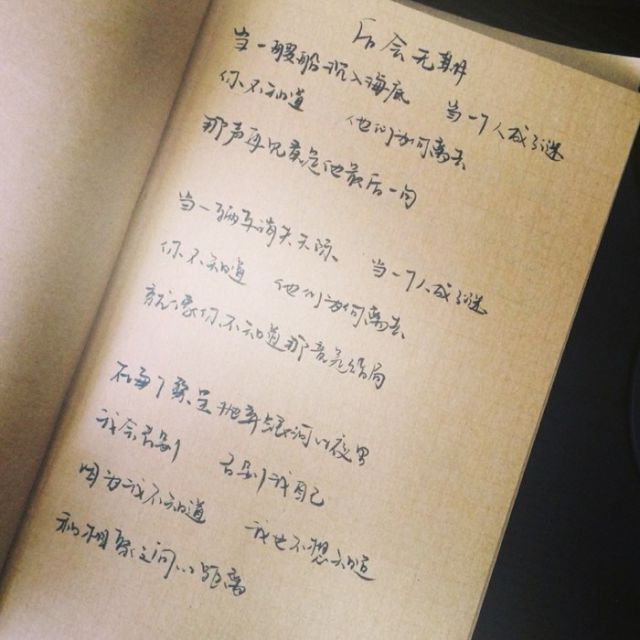 后会无期
当一艘船沉入海底 当一个人成了谜
你不知道 他们为何离去
那声再见竟是他最后一句
当一辆车消失天际 当一个人成了谜
你不知道 他们为何离去
就像你不知道那竟是结局
在每个繁星抛弃银河的夜里
我会告别 告别我自己
因为我不知道 我也不想知道
和相聚之间的距离